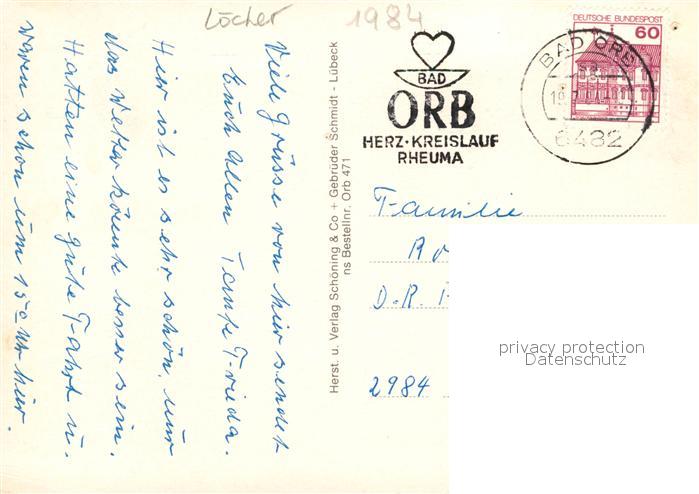 Löcher 1984
Viele Grüsse von hier sendet
Euch Allen Tante Frieda.
Hier ist es sehr schön, nur
das Wetter könnte besser sein.
Hatten eine gute Fahrt u.
waren schon um 15° Uhr hier.
Herst. u. Verlag Schöning & Co + Gebrüder Schmidt - Lübeck
ns Bestellnr. Orb 471
BAD
ORB
HERZ·KREISLAUF
RHEUMA
DEUTSCHE BUNDESPOST
60
BAD ORB
6482
Familie
D.R.
2984
privacy protection
Datenschutz